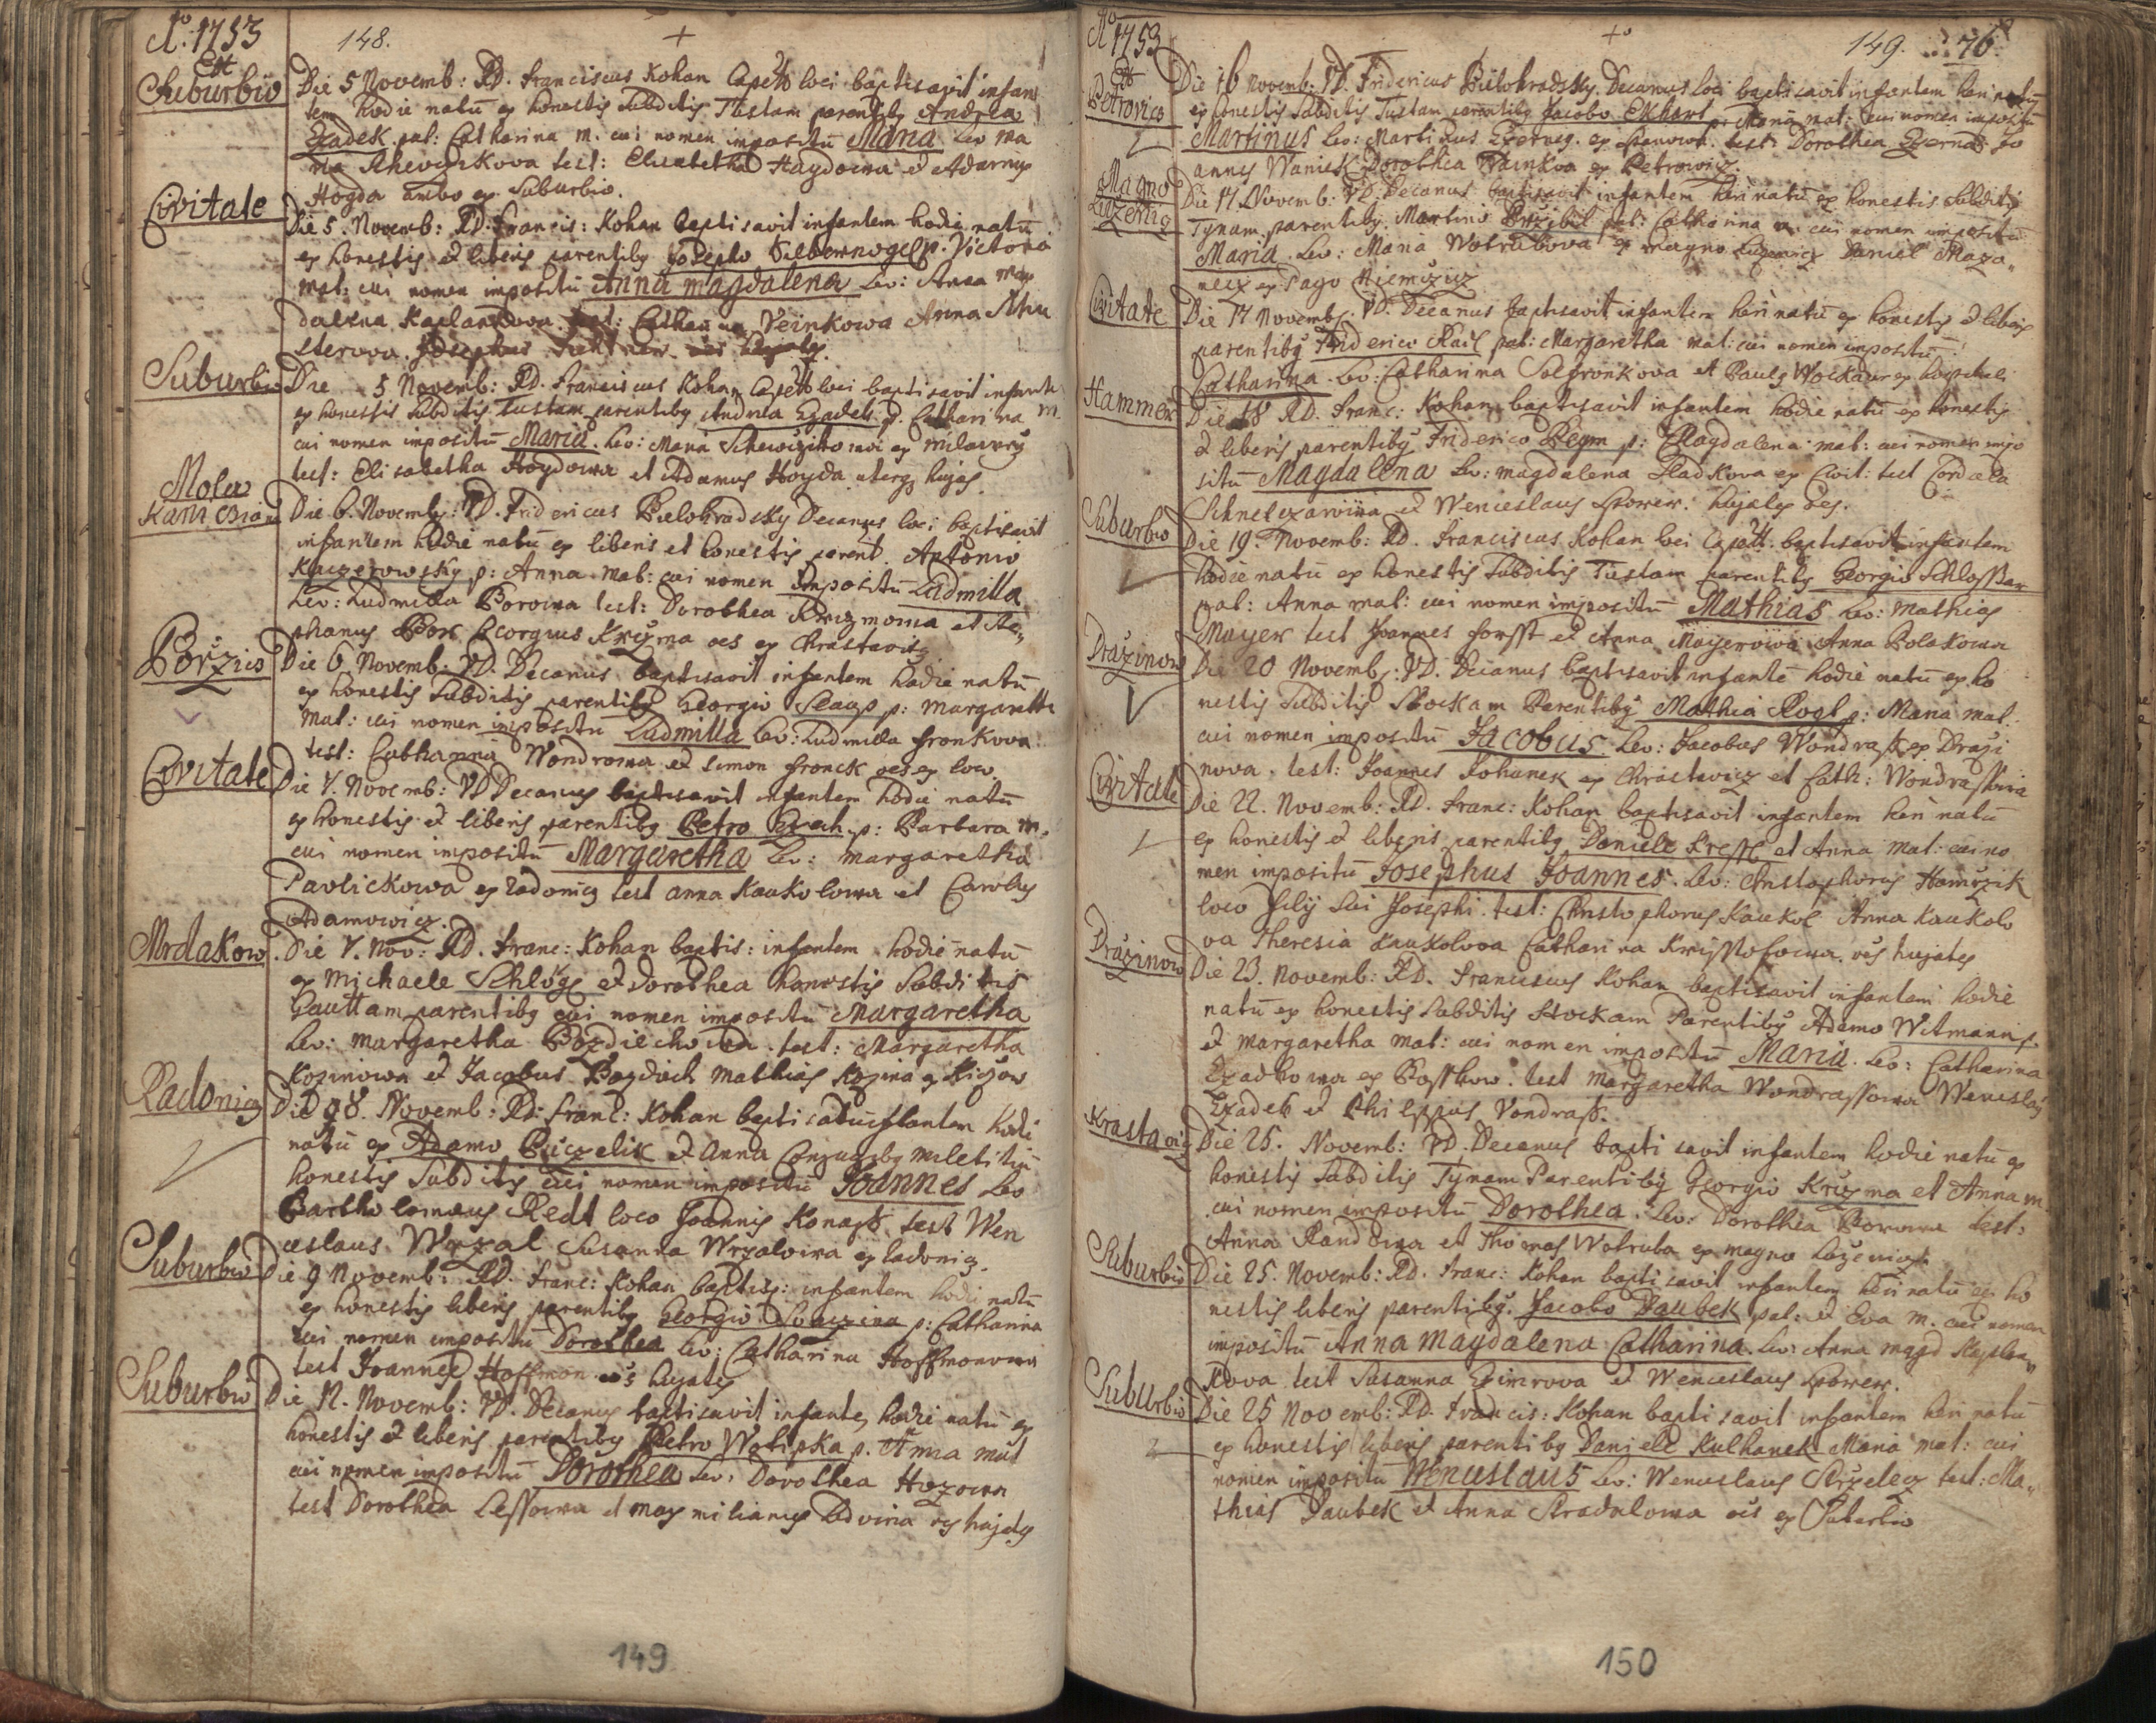 Ao. 1753
148.
+
Ex
Suburbio
Die 5 Novemb: RD. Franciscus Kohan Capell: loci baptisavit infan
tem hodie natū ex honestis Subditis Tustam parentibg Andrea
Czadek pat: Catharina m. cui nomen impositū Maria Lev Ma
ria test: Elisabetha Haydowa et Adamus
Hogda ambo ex Suburbio.
Civitate
Die 5. Novemb: RD. Francis: Kohan baptisavit infantem hodie natū
ex honestis et liberis parentibg Josepho Silbernogel p. Victoria
mat: cui nomen impositū Anna Magdalena Lev: Anna Mag
dalena Kaplankowa. test: Catharina Veinkowa Anna Schu
sterova Josephus
Suburbio
Die 5 Novemb: RD. Franciscus Kohan Capell loci baptisavit infante
ex honestis Subditis Tustam parentibg Andrea Czadek p. Catharina m.
cui nomen impositū Maria. Lev: Maria ex
test: Elisabetha Hogdowa et Adamus Hogda uterq hujas.
Mola
Die 6. Novemb: VD. Fridericus Bielohradsky Decanus loci baptisavit
infantem hodie natū ex liberis et honestis parent. Antonio
Kaczerowsky p: Anna mat: cui nomen impositū Ludmilla
Lev: Ludmilla Borowa test: Dorothea Krizmowa et Ste„
phanus Bor Georgius Krizma oes ex Chrastawitz
Porzicio
Die 6. Novemb: VD. Decanus baptisavit infantem hodie natū
ex honestis Subditis parentibg Georgio p: Margaretha
mat: cui nomen impositū Ludmilla Lev: Ludmilla Fronkova
test: Catharina Wondrowa et Simon Fronek oes ex loco
Civitate
Die 7. Novemb: VD Decanus baptisavit infantem hodie natū
ex honestis et liberis parentibg Petro p: Barbara m.
cui nomen impositū Margaretha Lev: Margaretha
Pavlickowa ex Radonicz test Anna Kaukolowa et Carolus
Adamowicz.
Mrdakow
Die 7. Nov: RD. Franc: Kohan baptis: infantem hodie natū
ex Michaele Schlögl et Dorothea honestis Subditis
Gauttam parentibg cui nomen impositū Margaretha
Lev: Margaretha test: Margaretha
Kozinowa et Jacobus Mathias Kozina
Radonicz
Die 8. Novemb: RD: Franc: Kohan infantem hodie
natū ex Adamo et Anna Conjugibg
honestis Subditis cui nomen impositū Joannes Lev
Bartholomaeus Redl loco Joannis test Wen
ceslaus Wrzal Susanna Wrzalowa ex Radonicz.
Suburbio
Die 9 Novemb: RD. Franc: Kohan baptis: infantem hodie natū
ex honestis liberis parentibg Georgio p: Catharina
cui nomen impositū Dorothea Lev: Catharina Hoffmonowa
test Joannes Hoffmon oēs hujates
Suburbio
Die 12. Novemb: VD. Decanus baptisavit infantē hodie natū ex
honestis et liberis parentibg Petro Wotipka p. Anna mat
cui nomen impositū Dorothea Lev: Dorothea Hozowa
test Dorothea Lessowa et Maxmilianus Ledvina oēs hujates
149
Ao 1753
+
149. 76.
Ex
Petrovicz
Die 16 Novemb: VD. Fridericus Bielohradsky Decanus loci baptisavit infantem heri natū
ex honestis Subditis Tustam parentibg Jacobo Ekhart p: Maria mat: cui nomen impositū
Martinus Lev: Martinus test: Dorothea Jo
annes Waniek Dorothea Wainkva ex Petrowicz.
Magno
Luzenitz
Die 17. Novemb: VD. Decanus baptisavit infantem heri natū ex honestis Subditis
Tynam parentibg Martino pat: Catharina m cui nomen impositū
Maria. Lev: Maria Wotrubova ex magno Luzenicz Daniel Maza„
necz ex Pago Niemczicz
Civitate
Die 17 Novemb: VD. Decanus baptisavit infantem heri natū ex honestis et liberis
parentibg Friderico pat: Margaretha mat: cui nomen impositū
Catharina Lev: Catharina et Paulg
Hammer
Die 18 RD. Franc: Kohan baptisavit infantem hodie natū ex honestis
et liberis parentibg Friderico p: Magdalena mat: cui nomen impo
situ Magdalena Lev: Magdalena Hladkova ex Civit: test Cordula
et Wenceslaus hujates oes.
Suburbio
Die 19. Novemb: RD. Franciscus Kohan loci Capell: baptisavit infantem
hodie natū ex honestis Subditis Tustam parentibg Georgio Schlosser
pat: Anna mat: cui nomen impositū Mathias Lev: Mathias
Mayer test Joannes Forsst et Anna Mayerowa Anna Polakowa
Drazinow
Die 20 Novemb: VD. Decanus baptisavit infantē hodie natū ex ho
nestis Subditis Stockam Parentibg Mathia p: Maria mat:
cui nomen impositū Jacobus Lev: Jacobus Wondrass ex Drazi
nova. test: Joannes Johanek ex Chrastavicz et Cath: Wondrassova
Civitate
Die 22. Novemb: RD. Franc: Kohan baptisavit infantem heri natū
ex honestis et liberis parentibg Daniele et Anna mat: cui no
men impositū Josephus Joannes. Lev: Christophorus
loco filij sui Josephi. test: Christophorus Kaukol Anna Kaukolo
va Theresia Kaukolova Catharina oēs hujates
Drazinow
Die 23. Novemb: RD. Franciscus Kohan baptisavit infantem hodie
natū ex honestis Subditis Stockam Parentibg Adamo Witmann p.
et Margaretha mat: cui nomen impositū Maria. Lev: Catharina
Czadkowa ex test Margaretha Wondrassowa Wenceslaus
Czadek et Philippus Vondrass.
Krastavicz
Die 25. Novemb: VD. Decanus baptisavit infantem hodie natū ex
honestis Subditis Tynam Parentibg Georgio Krizma et Anna m.
cui nomen impositū Dorothea. Lev: Dorothea Borowa test:
Anna Randowa et Thomas Wotruba ex magno Lozenicz.
Suburbio
Die 25. Novemb: RD. Franc: Kohan baptisavit infantem heri natū ex ho
nestis liberis parentibg. Jacobo Daubek pat: et Eva m. cui nomen
impositū Anna Magdalena Catharina. Lev: Anna Magd
kova test Susanna et Wenceslaus
Suburbio
Die 25 Novemb: RD. Francis: Kohan baptisavit infantem heri natū
ex honestis liberis parentibg Daniele Kulhanek Maria mat: cui
nomen impositū Wenceslaus Lev: Wenceslaus test: Ma„
thias Daubek et Anna Stradalowa oēs ex Suburbio
150